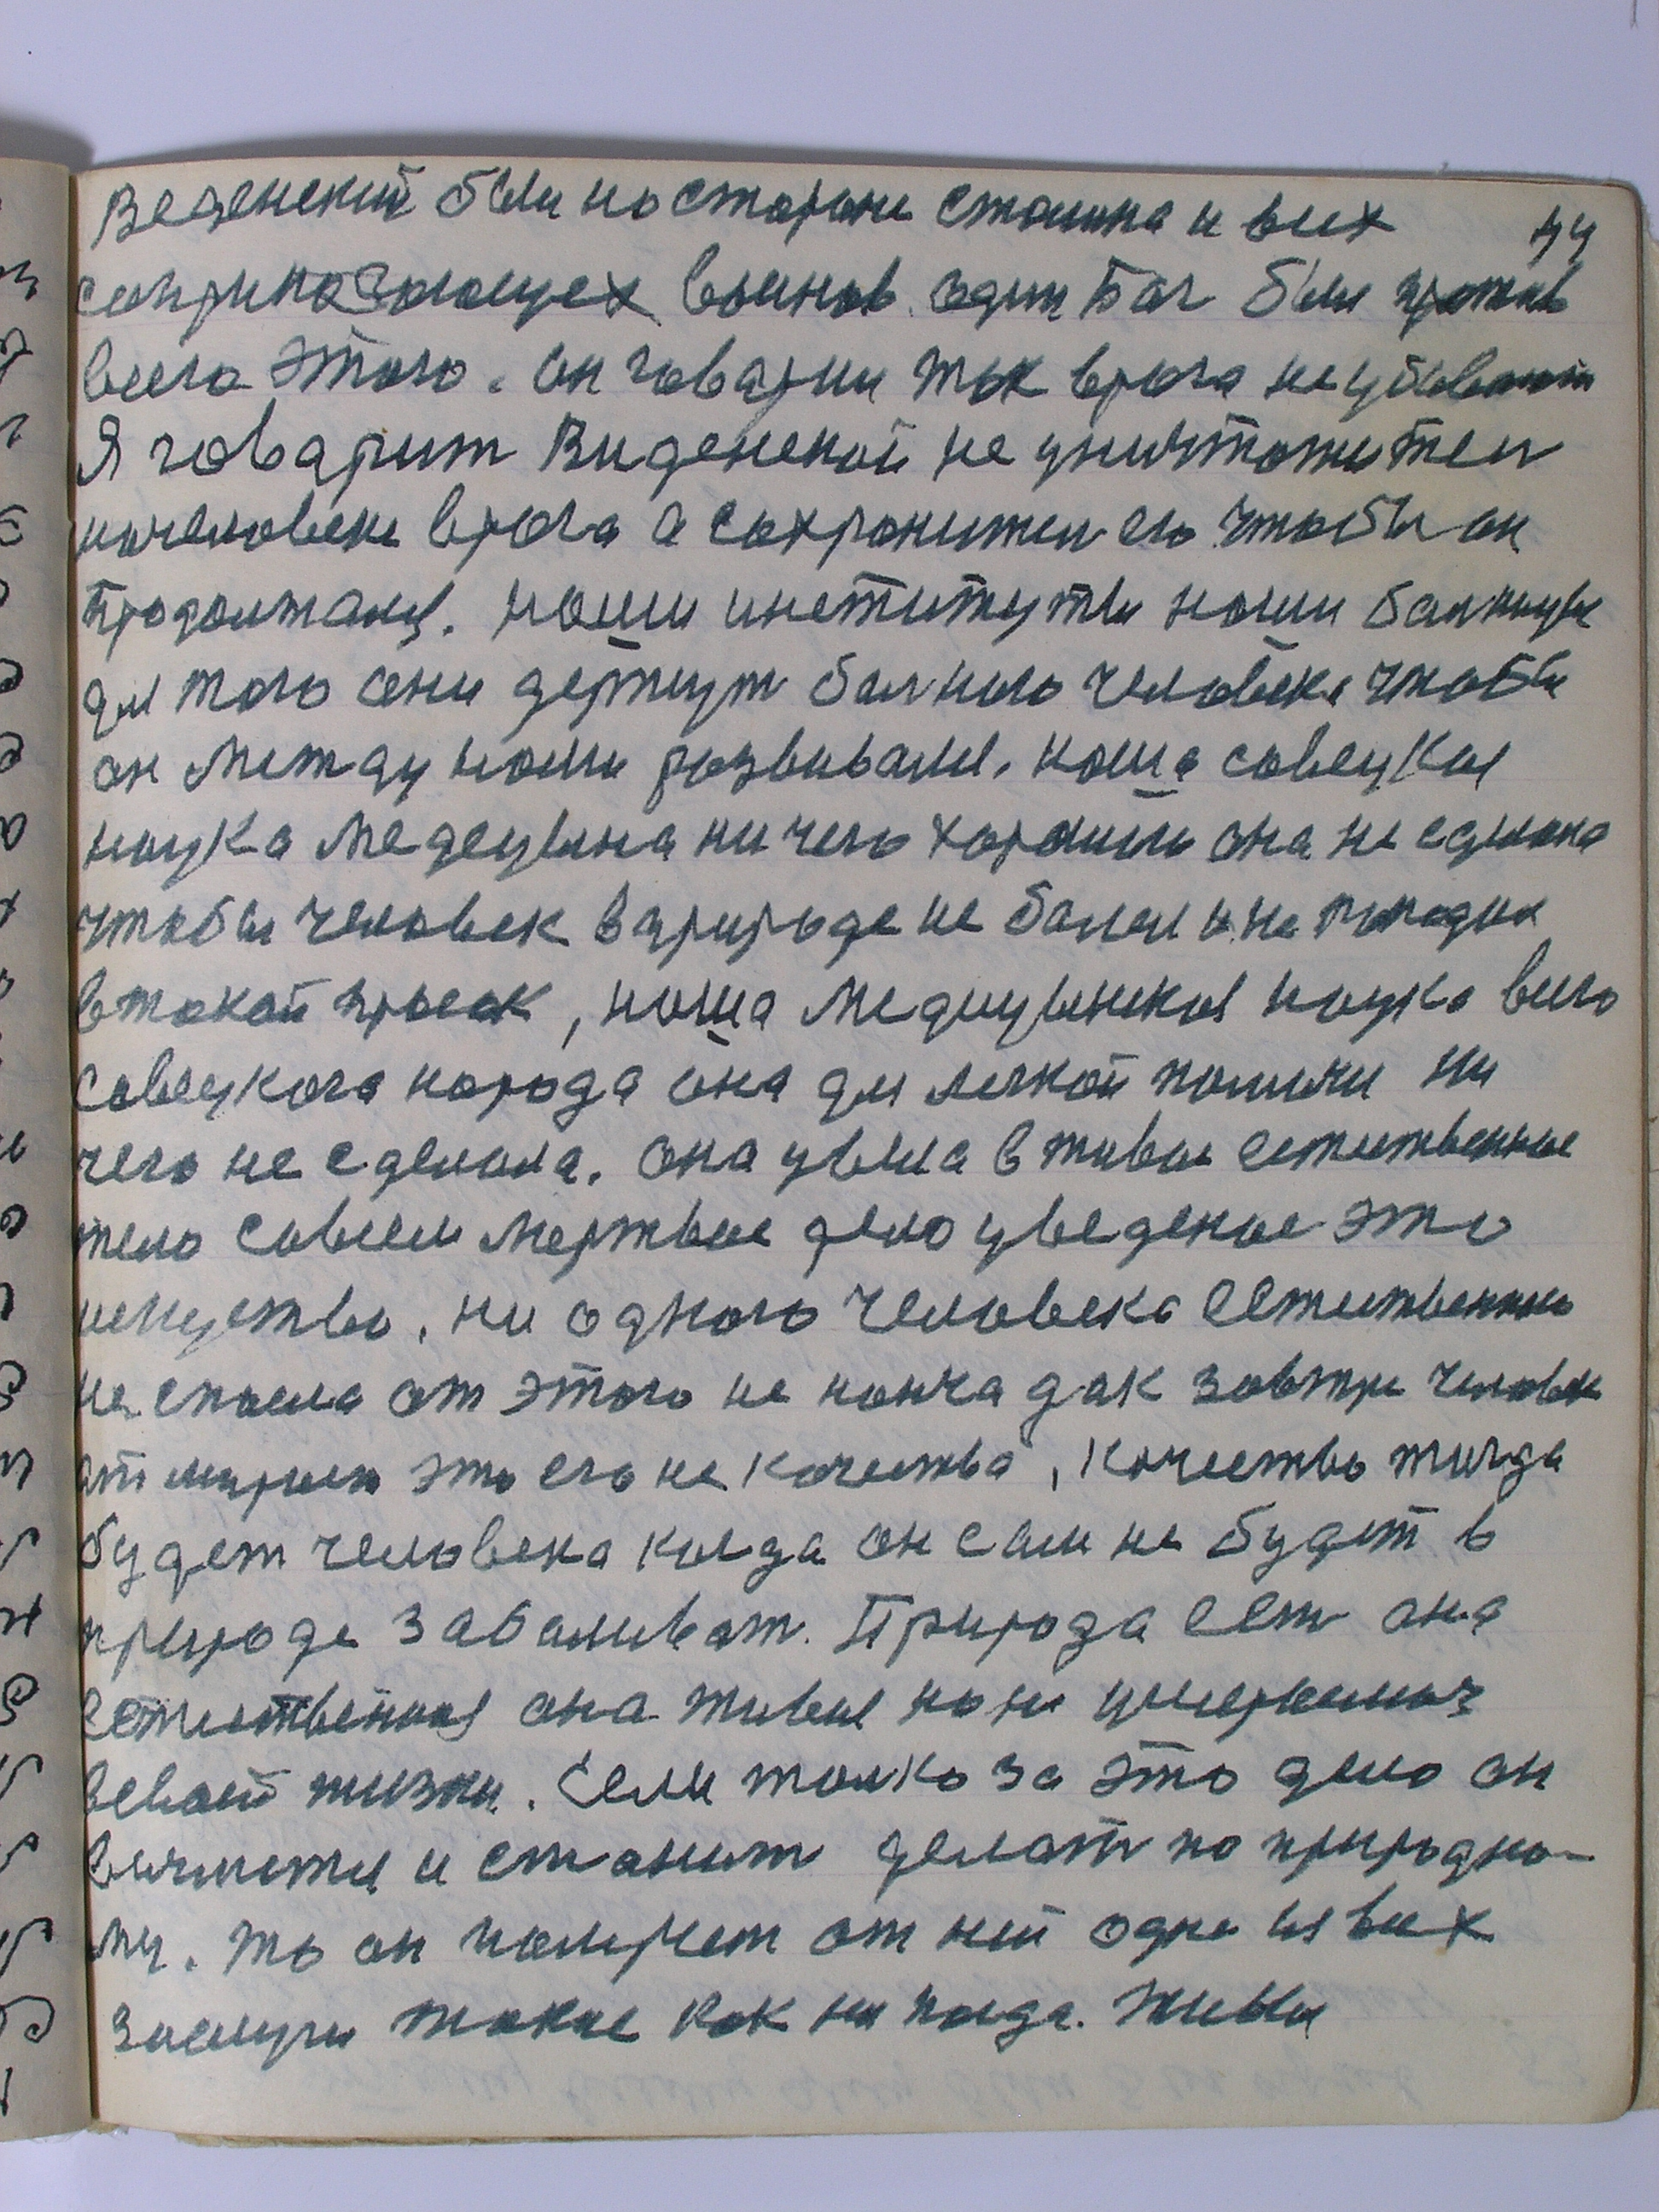 Веденский были на стороне сталина и всех
44
саприкосающех воинов. один Бог был против
всего этого. он говарил так врага не убивают
Я говарит Виденской не уничтожител
на человеке врога а сохронител его чтобы он
продолжался. наши инститкуты наши балницы
для того они держут балного человека чтобы
он между нами розвивался. наша совецкая
наука медецына ни чего хорошего она не сделала
чтобы человек в природе не балел и не попадал
в такой просак, наша медицынская наука всего
совецкого народа она для легкой помочи ни
чего не сделала. она увела в живое естественное
тело совсем мертвое дело уведеное это
искуство. ни одного человека естественного
не спасла от этого не конча дак завтри человек
отмирает это его не качества, качество тигда
будет человека когда он сам не будет в
природе забаливат. Природа ест она
естественная она живая но не умераючя
в своей жизни. Если толко за это дело он
возметця и станит делат по природно-
му. то он получет от ней одне из всех
заслуги такие как ни когда. жива